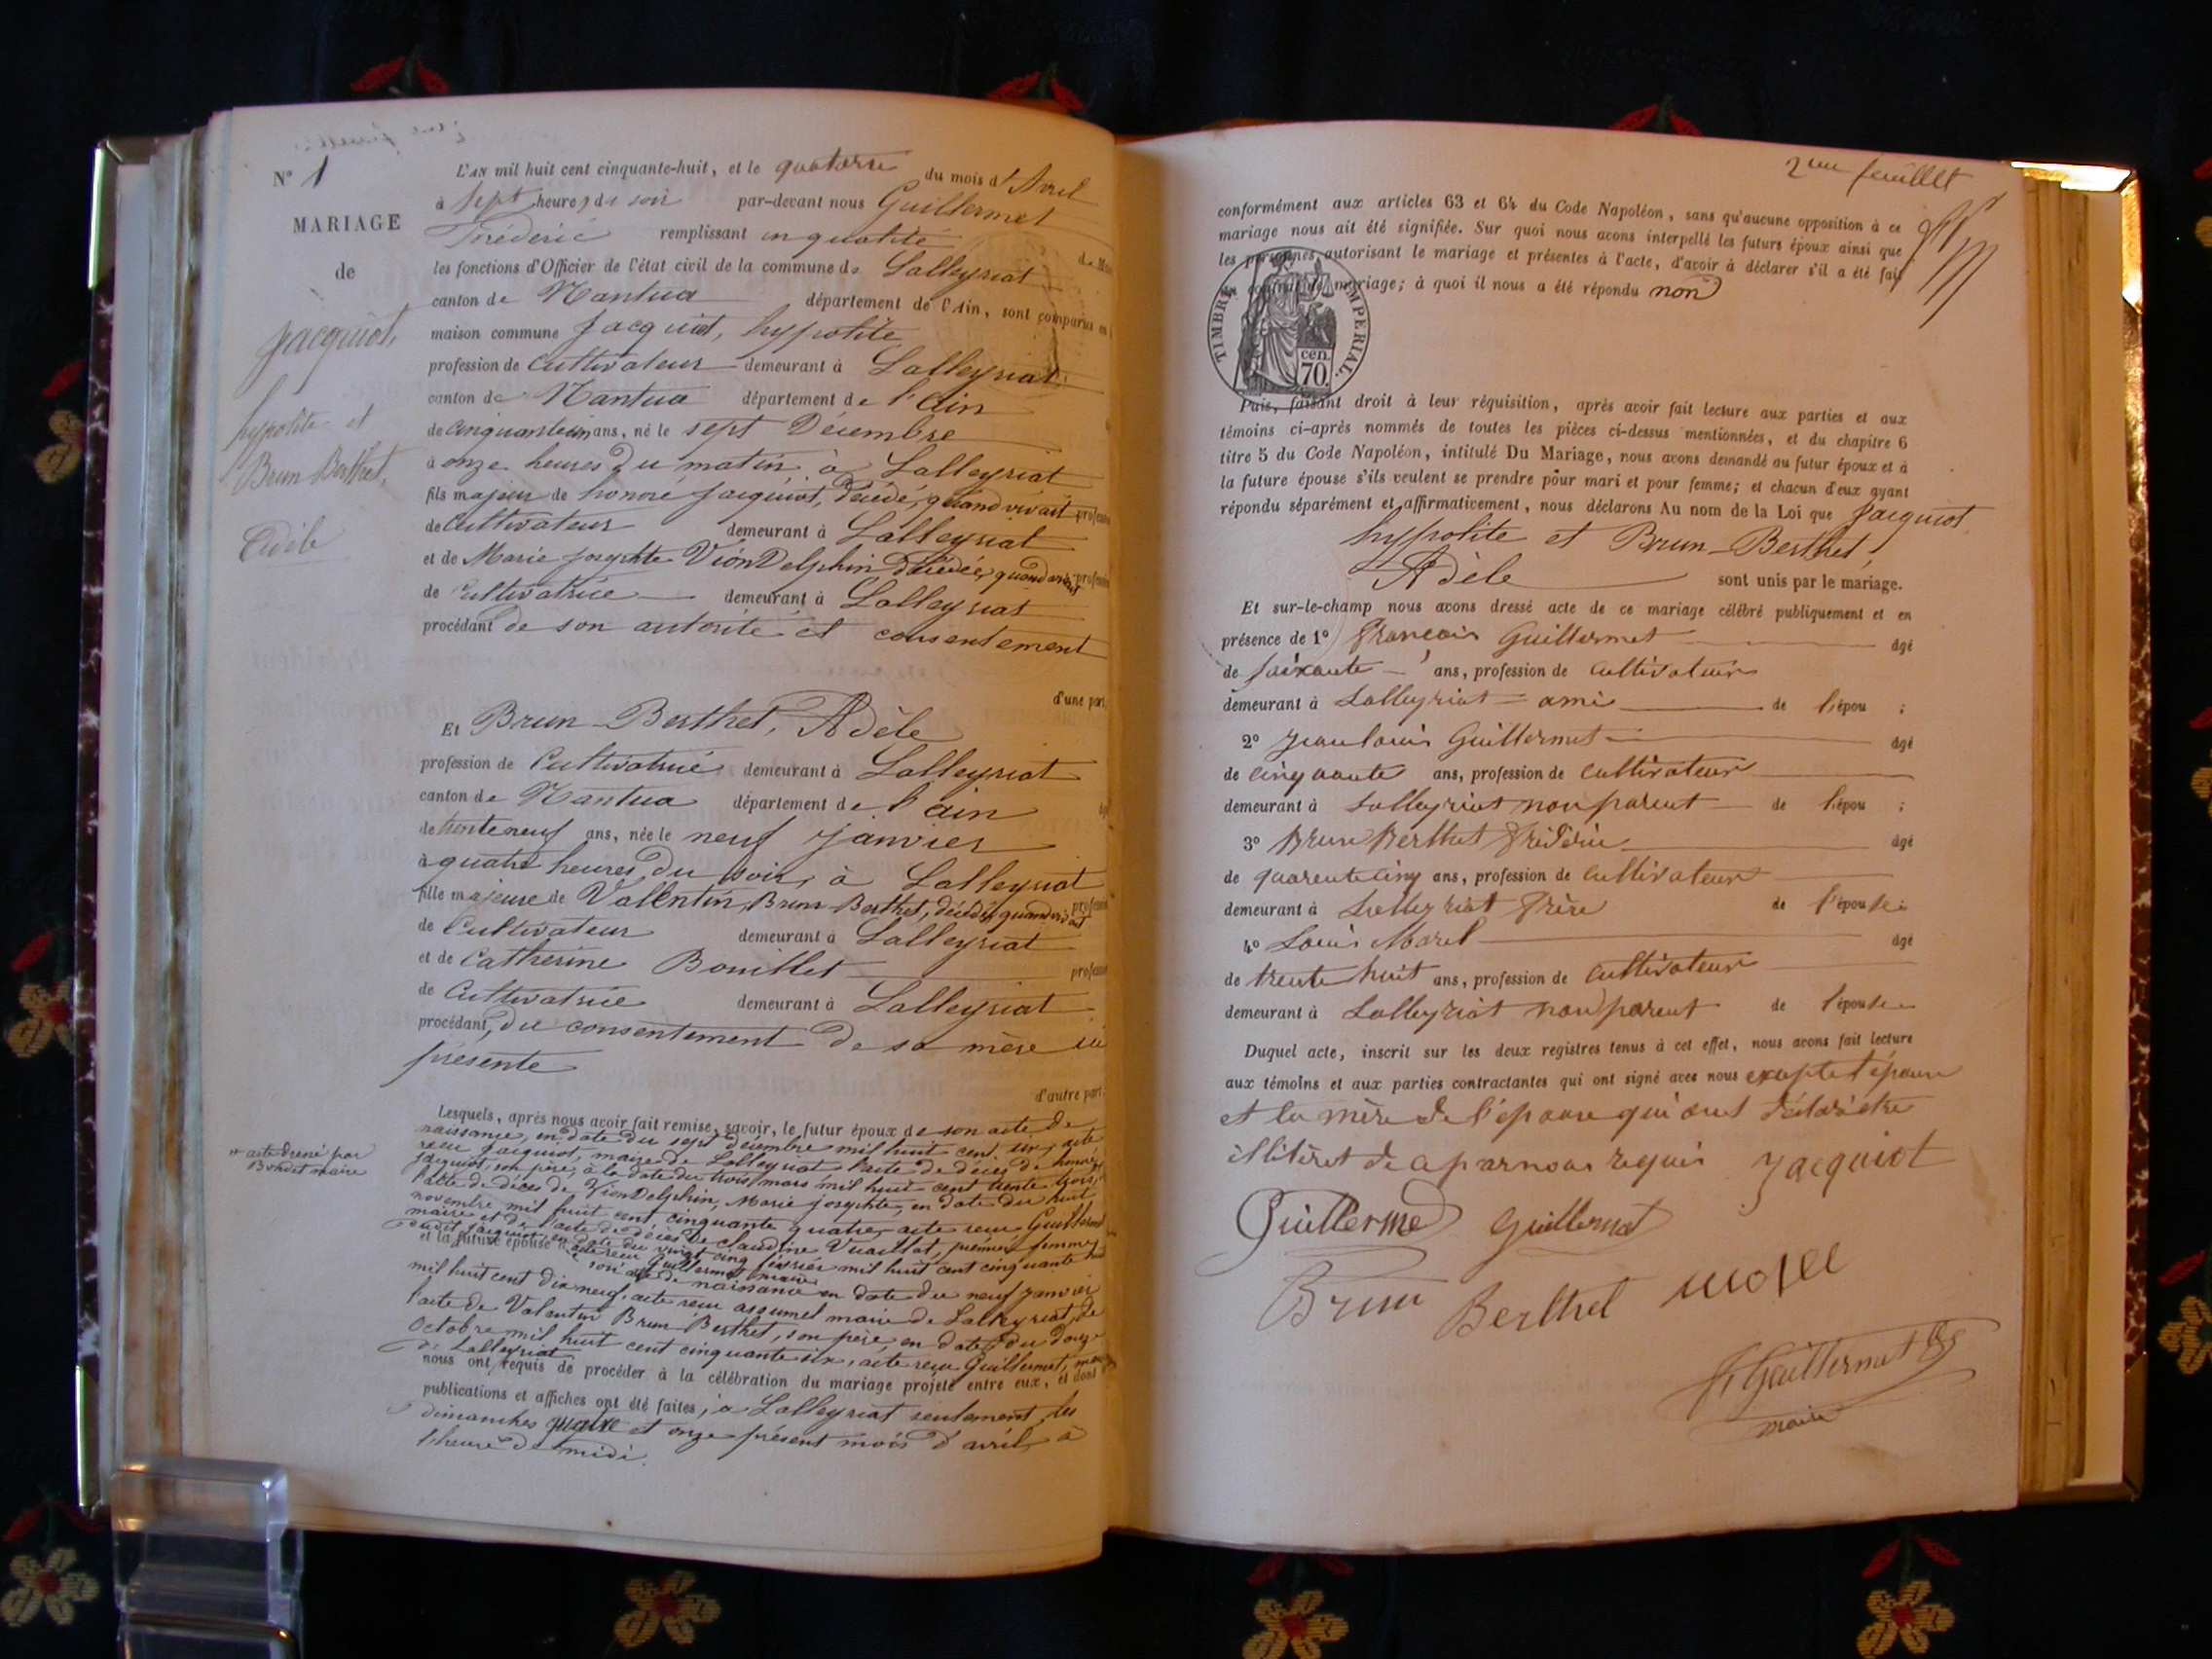 N° 1
MARIAGE
de
Jacquiot,
hypolite et
Brun-Berthet,
Adèle
L'AN mil huit cent cinquante-huit, et le quatorze du mois d'Avril
à sept heures de soir par-devant nous Guillermet
Fréderic remplissant en qualité de
les fonctions d'Officier de l'état civil de la commune de Lalleyriat
canton de Nantua département de l'Ain, sont comparus en
maison commune Jacquiot, hypolite
profession de Cultivateur demeurant à Lalleyriat
canton de Nantua département de l'ain
de cinquante un ans, né le sept Décembre
à onze heures du matin à Lalleyriat
fils majeur de honoré Jacquiot, décédé, quand vivait profession
de Cultivateur demeurant à Lalleyriat
et de Marie Josephte Vion Delphin décédée, quand vivait profession
de Cultivatrice demeurant à Lalleyriat
procédant de son autorité et consentement
d'une part,
Et Brun-Berthet, Adèle
profession de Cultivatrice demeurant à Lalleyriat
canton de Nantua département de l'ain
de trente neuf ans, née le neuf janvier
à quatre heures du soir, à Lalleyriat
fille majeure de Valentin, Brun-Berthet, décédé, quand vivait profession
de Cultivateur demeurant à Lalleyriat
et de Catherine Bouillet profession
de Cultivatrice demeurant à Lalleyriat
procédant, du consentement de sa mère ici
présente
d'autre part.
Lesquels, après nous avoir fait remise, savoir, le futur époux de son acte de
naissance, en date du sept décembre mil huit cent six, acte
reçu Jacquiot, maire de Lalleyriat l'acte de décès de honoré
Jacquiot, son père, à la date du trois mars mil huit cent trente trois,
l'acte de décès de Vion Delphin, Marie josephte, en date du huit
novembre mil huit cent cinquante quatre, acte reçu Guillermet
maire et de l'acte de décès de Claudine Vuaillat, première femme
dudit Jacquiot, en date du vingt cinq février mil huit cent cinquante
acte reçu Guillermet maire
et la future épouse son acte de naissance en date du neuf janvier
mil huit cent dix neuf, acte reçu assumel maire de Lalleyriat, de
l'acte de Valentin Brun-Berthet, son père, en date du douze
Octobre mil huit cent cinquante six, acte reçu Guillermet, maire
de Lalleyriat
nous ont requis de procéder à la célébration du mariage projeté entre eux, et dont
publications et affiches ont été faites, à Lalleyriat seulement, les
dimanches quatre et onze présent mois d'avril, à
l'heure de midi.
acte dressé par
maire
2eme feuillet
conformément aux articles 63 et 64 du Code Napoléon, sans qu'aucune opposition à ce
mariage nous ait été signifiée. Sur quoi nous avons interpellé les futurs époux ainsi que
les personnes autorisant le mariage et présentes à l'acte, d'avoir à déclarer s'il a été fait
un contrat de mariage; à quoi il nous a été répondu non
TIMBRE IMPERIAL.
cen.
70.
Puis, faisant droit à leur réquisition, après avoir fait lecture aux parties et aux
témoins ci-après nommés de toutes les pièces ci-dessus mentionnées, et du chapitre 6
titre 5 du Code Napoléon, intitulé Du Mariage, nous avons demandé au futur époux et à
la future épouse s'ils veulent se prendre pour mari et pour femme; et chacun d'eux ayant
répondu séparément et affirmativement, nous déclarons Au nom de la Loi que Jacquiot
hypolite et Brun-Berthet,
Adèle sont unis par le mariage.
Et sur-le-champ nous avons dressé acte de ce mariage célébré publiquement et en
présence de 1° François Guillermet âgé
de soixante ans, profession de cultivateur
demeurant à Lalleyriat ami de l'épou ;
2° jean louis Guillermet âgé
de cinquante ans, profession de cultivateur
demeurant à Lalleyriat non parent de l'épou ;
3° Brun Berthet fréderic âgé
de quarente cinq ans, profession de cultivateur
demeurant à Lalleyriat frère de l'épouse
4° Louis Morel âgé
de trente huit ans, profession de cultivateur
demeurant à Lalleyriat non parent de l'épouse
Duquel acte, inscrit sur les deux registres tenus à cet effet, nous avons fait lecture
aux témoins et aux parties contractantes qui ont signé avec nous excepté l'épouse
et la mère de l'épouse qui ont déclaré être
illitéret de ce par nous requis Jacquiot
Guillermet Guillermet
Brun Berthet morel
f. Guillermet
maire